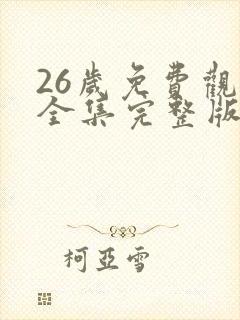 26歲免費觀
全集完整版
柯亞雪